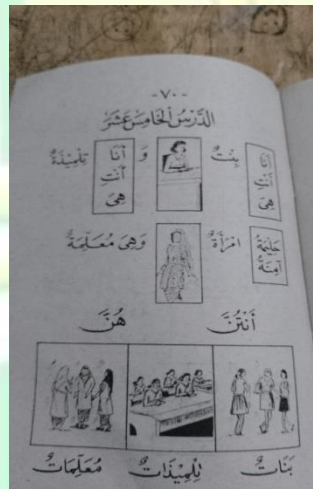 -٧٠-
الدَّرْسُ الْخَامِسَ عَشَرَ
أَنَا
أَنْتِ
هِيَ
بِنْتٌ
وَ
أَنَا
أَنْتِ
هِيَ
تِلْمِيْذَةٌ
حَلِيْمَةُ
آمِنَةُ
امْرَأَةٌ
وَهِيَ مُعَلِّمَةٌ
أَنْتُنَّ هُنَّ
بَنَاتٌ تِلْمِيْذَاتٌ مُعَلِّمَاتٌ